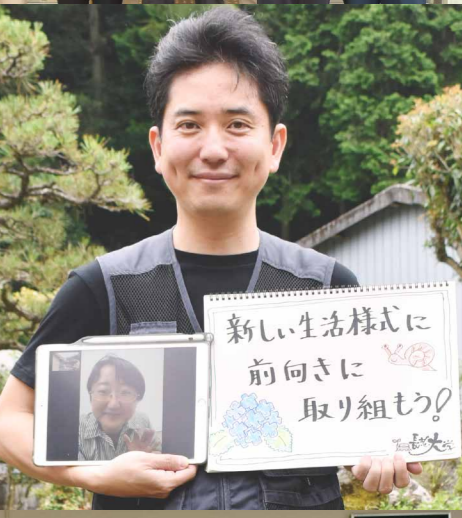 新しい生活様式に
前向きに
取り組もう!